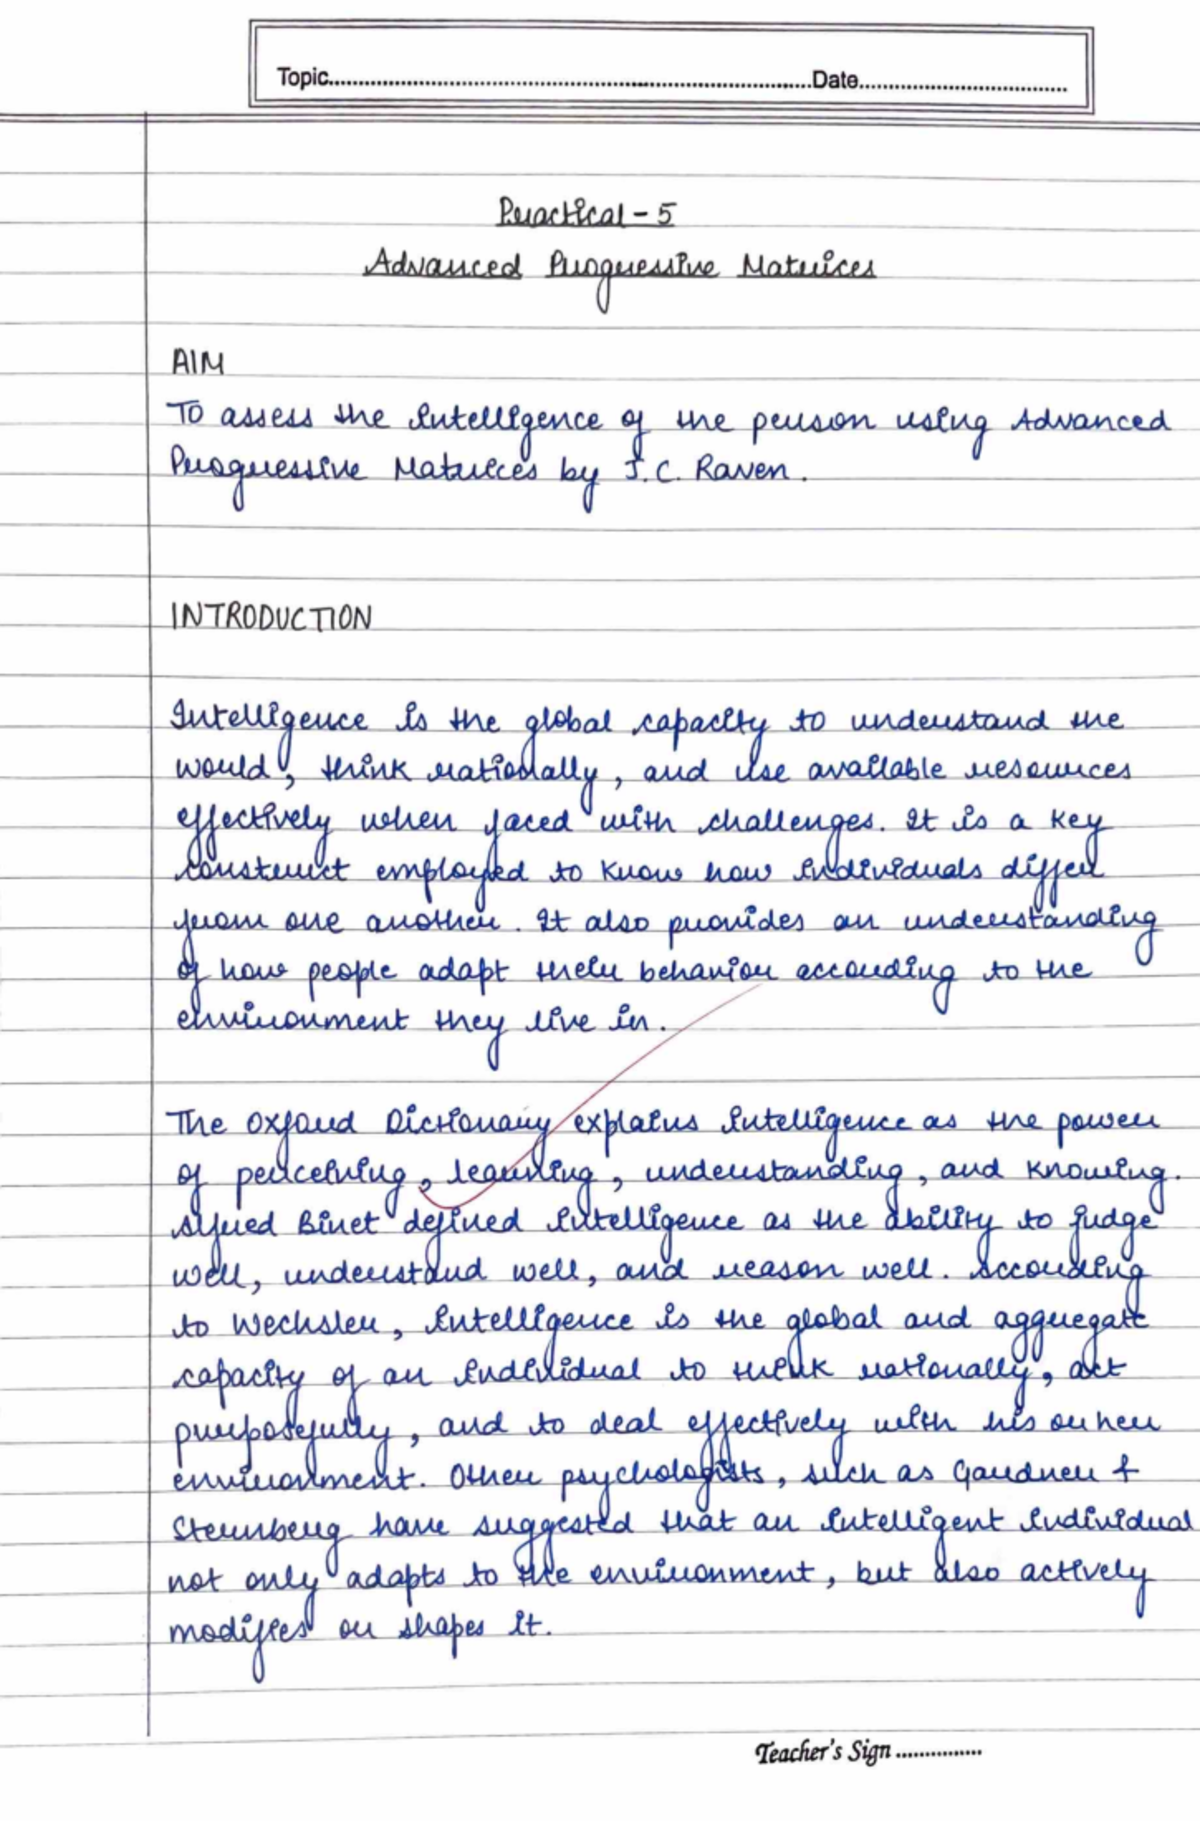 Topic..............................Date..............................
Practical - 5
Advanced Progressive Matrices
AIM
To assess the intelligence of the person using Advanced
Progressive Matrices by J.C. Raven.
INTRODUCTION
Intelligence is the global capacity to understand the
world, think rationally, and use available resources
effectively when faced with challenges. It is a key
construct employed to know how individuals differ
from one another. It also provides an understanding
of how people adapt their behavior according to the
environment they live in.
The Oxford Dictionary explains intelligence as the power
of perceiving, learning, understanding, and knowing.
Alfred Binet defined intelligence as the ability to judge
well, understand well, and reason well. According
to Wechsler, intelligence is the global and aggregate
capacity of an individual to think rationally, act
purposefully, and to deal effectively with his or her
environment. Other psychologists, such as Gardner &
Sternberg have suggested that an intelligent individual
not only adapts to the environment, but also actively
modifies or shapes it.
Teacher's Sign ...............